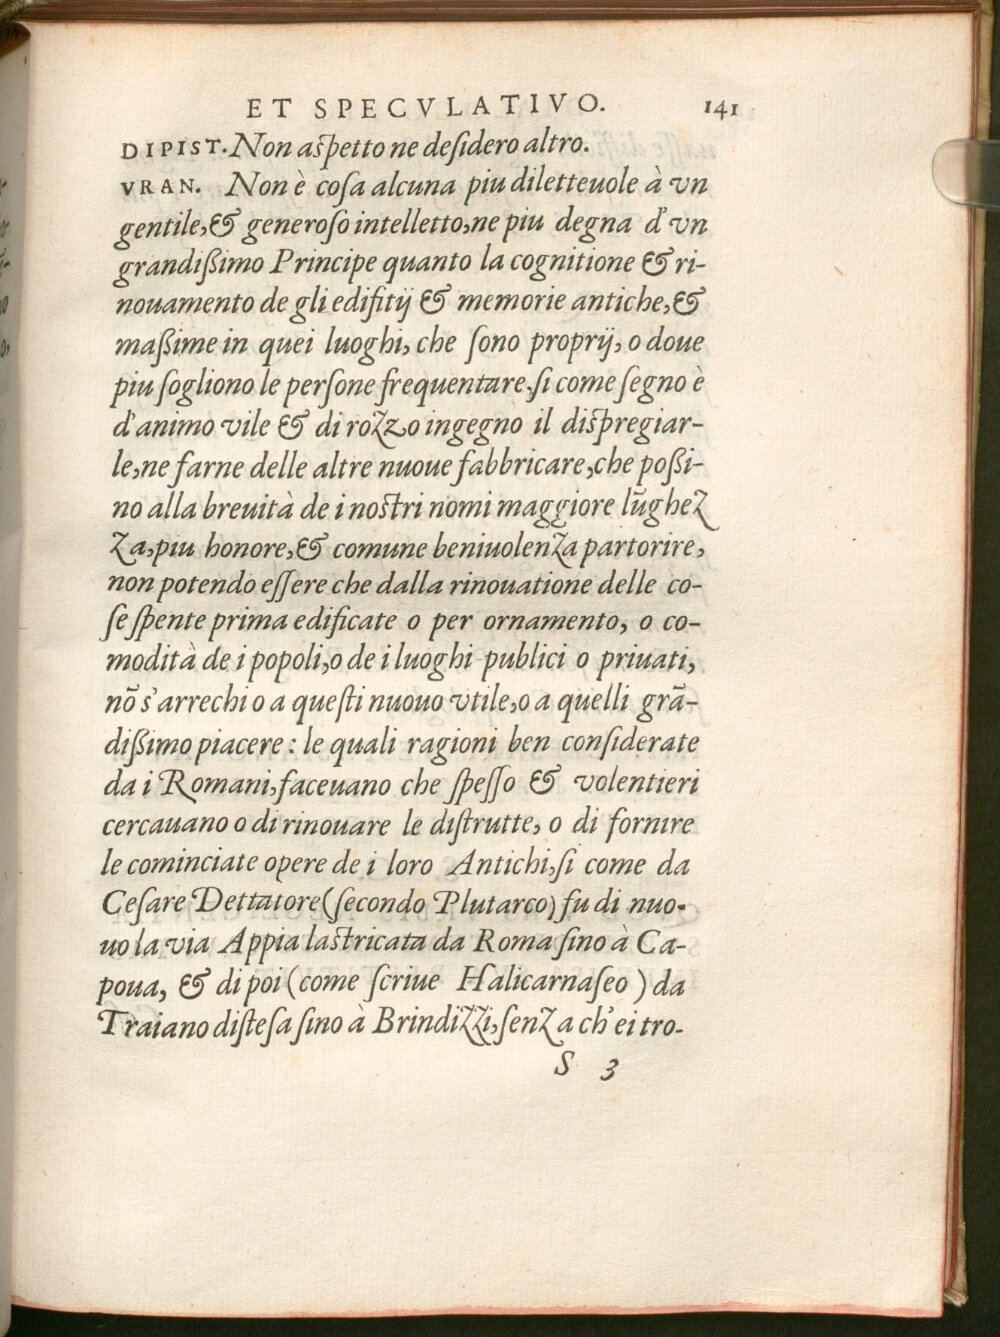 ET SPECVLATIVO. 141
DIPIST. Non aspetto ne desidero altro.
VRAN. Non è cosa alcuna piu diletteuole à vn
gentile, & generoso intelletto, ne piu degna d'vn
grandißimo Principe quanto la cognitione & ri-
nouamento de gli edifitij & memorie antiche, &
maßime in quei luoghi, che sono proprij, o doue
piu sogliono le persone frequentare, si come segno è
d'animo vile & di rozzo ingegno il dispregiar-
le, ne farne delle altre nuoue fabbricare, che poßi-
no alla breuità de i nostri nomi maggiore lūghez
za, piu honore, & comune beniuolenza partorire,
non potendo essere che dalla rinouatione delle co-
se spente prima edificate o per ornamento, o co-
modità de i popoli, o de i luoghi publici o priuati,
nō s'arrechi o a questi nuouo vtile, o a quelli grā-
dißimo piacere: le quali ragioni ben considerate
da i Romani, faceuano che spesso & volentieri
cercauano o di rinouare le distrutte, o di fornire
le cominciate opere de i loro Antichi, si come da
Cesare Dettatore (secondo Plutarco) fu di nuo-
uo la via Appia lastricata da Roma sino à Ca-
poua, & di poi (come scriue Halicarnaseo) da
Traiano distesa sino à Brindizzi, senza ch'ei tro-
S 3